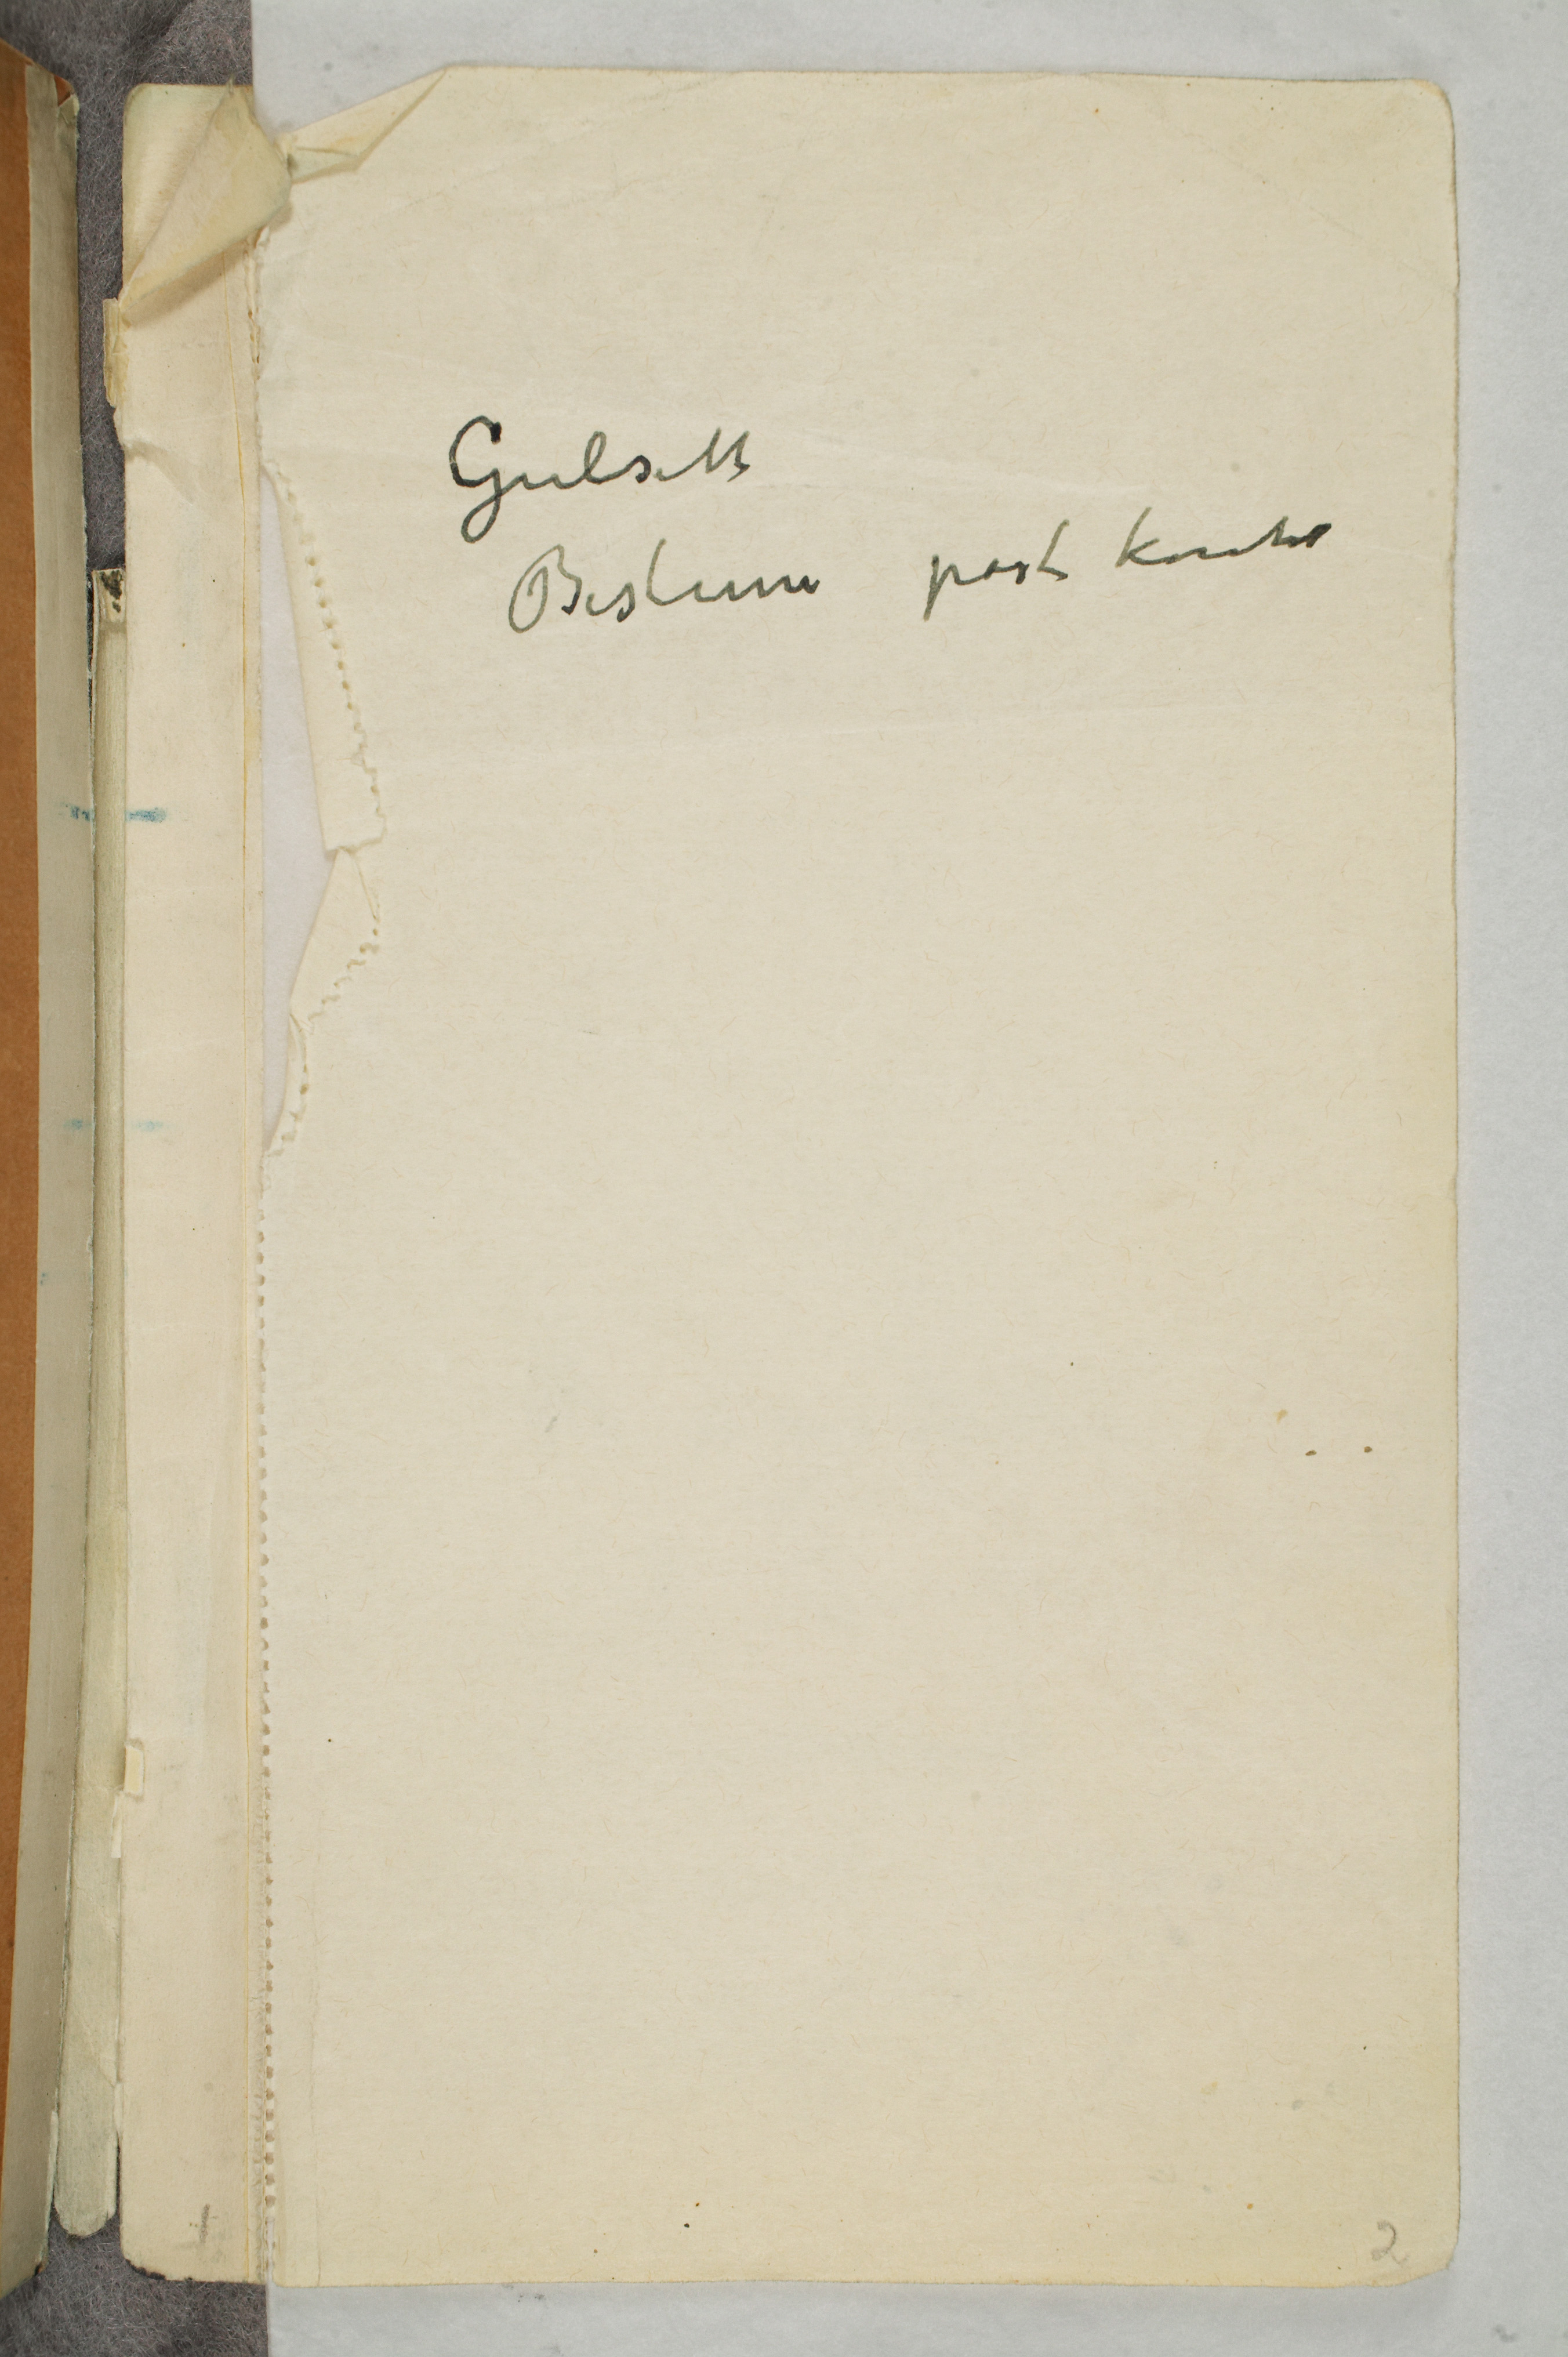 Gulseth
Bestum post kontor
1
2